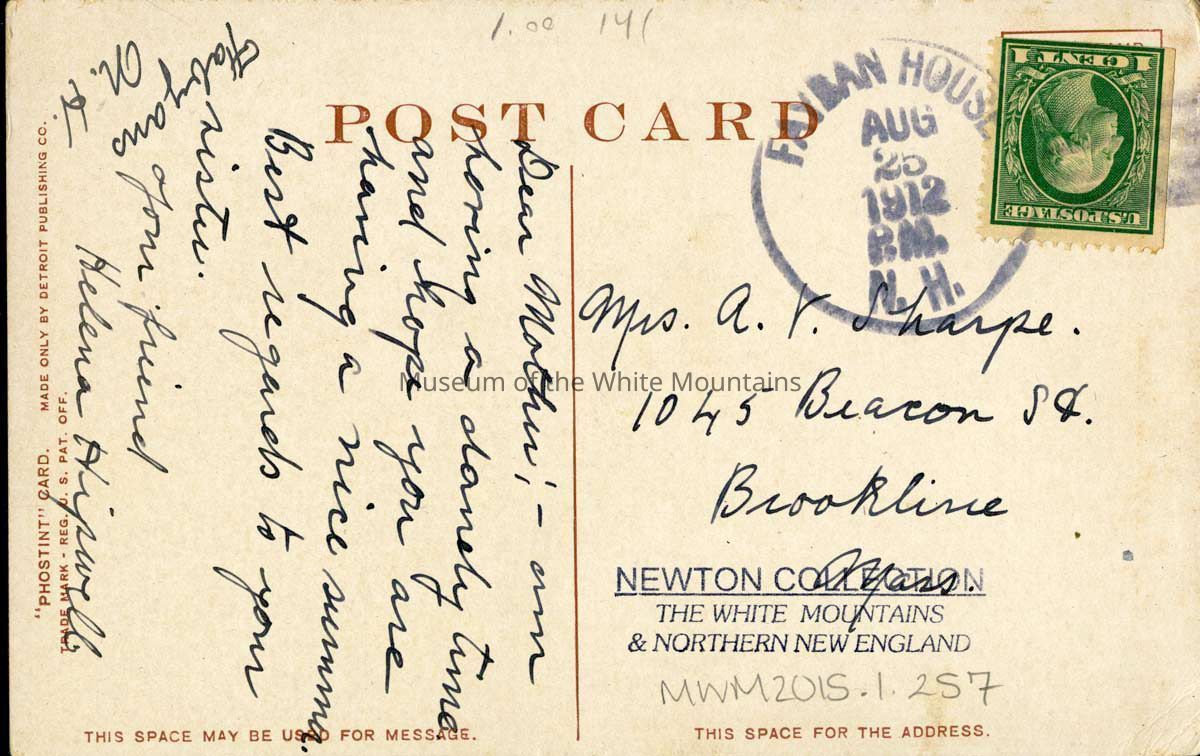 1.00 141
POST CARD
FABYAN HOUSE
AUG
25
1912
P.M.
N. H.
1 CENT 1
U.S. POSTAGE
Dear Mother:- am
having a dandy time
and hope you are
having a nice summer.
Best regards to your
sister.
Your friend
Helena Hipwell.
Fabyans
N. H.
Mrs. A. V. Sharpe.
1045 Beacon St.
Brookline
Mass.
Museum of the White Mountains
NEWTON COLLECTION
THE WHITE MOUNTAINS
& NORTHERN NEW ENGLAND
MWM2015.1.257
"PHOSTINT" CARD. MADE ONLY BY DETROIT PUBLISHING CO.
TRADE MARK - REG. U. S. PAT. OFF.
THIS SPACE MAY BE USED FOR MESSAGE.
THIS SPACE FOR THE ADDRESS.